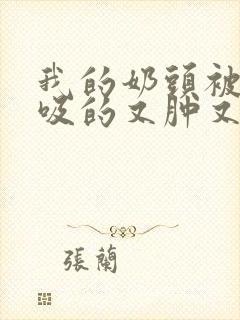 我的奶頭被
吸的又肿又
張蘭